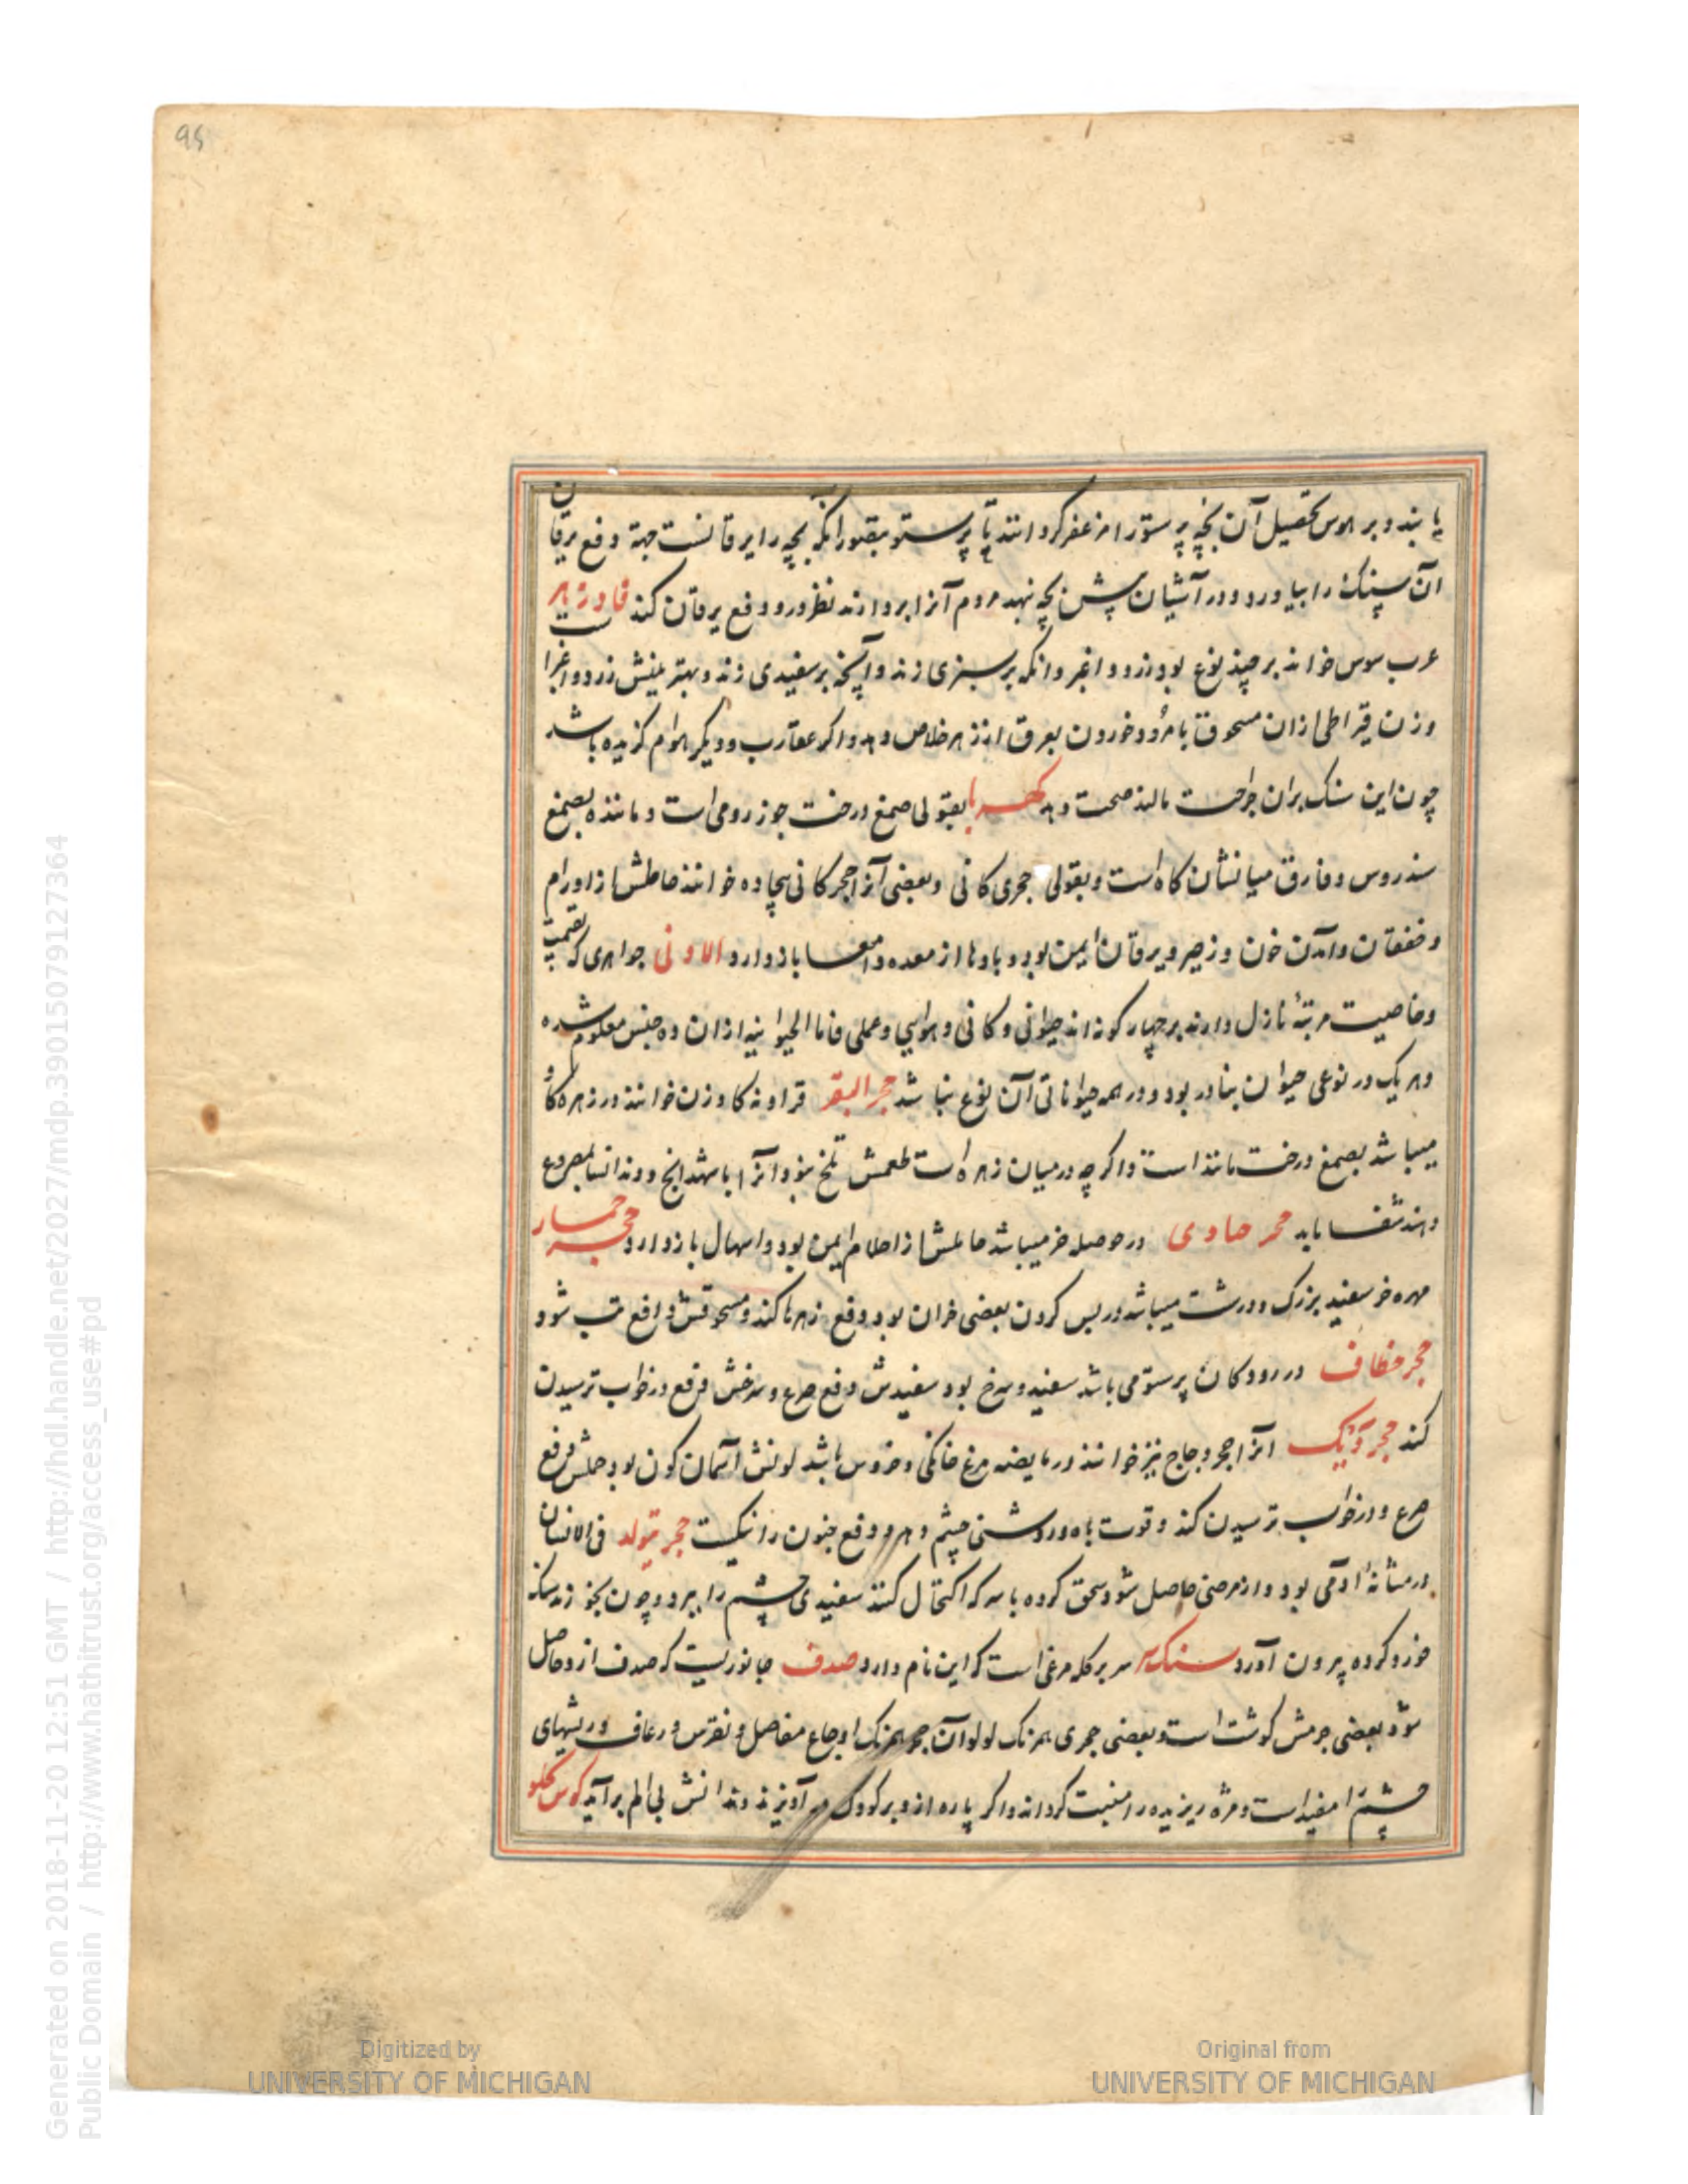 یابند و بر هوس تحصیل آن بچه پرستو را مزعفر گردانند تا پرستو بتصور انکه بچه را یرقانست جهة دفع یرقان
آن سنک را بیاورد و در آشیان پیش بچه نهد مردم آنرا بردارند نظر درو دفع یرقان کند فادزهر
عرب سوس خواند بر چند نوع بود زرد و اغبر و انکه بر سبزی زند و آنچه بر سفیدی زند و بهترینش زرد و اغبر
وزن قیراطی ازان مسحوق با مرد خوردن بعرق از زهر خلاص دهد و اکر عقارب و دیکر هوام کزیده باشد
چون این سنک بران جراحت مالند صحت دهد کهربا بقولی صمغ درخت جوز رومی است و ماننده بصمغ
سندروس و فارق میانشان کاه است و بقولی حجری کانی و بعضی آنرا حجر کانی بیجاده خوانند حاملش از اورام
و خفقان و آمدن خون و زحیر و یرقان ایمن بود و بادها از معده و امعا بازدارد الادنی جواهری که بقیمت
و خاصیت مرتبهٔ نازل دارند بر چهار کونه اند حیوانی و کانی و هوایی و عملی فاما الحیوانیه ازان ده جنس معلوم شده
و هر یک در نوعی حیوان بنادر بود و در همه حیواناتی آن نوع نباشد حجر البقر فراونه کاوزن خوانند در زهره کاو
میباشد بصمغ درخت مانند است و اکر چه در میان زهره است طعمش تلخ نبود آنرا با شهدانج و دندانسا بمصروع
دهند شفا یابد حجر حاوی در حوصله خر میباشد حاملش از احلام ایمن بود و اسهال بازدارد حجر حمار
مهره خر سفید بزرک و درشت میباشد در پس کردن بعضی خران بود دفع زهرها کند و مسحوقش دافع تب شود
حجر خطاف در رودکان پرستو می باشد سفید و سرخ بود سفیدش دفع صرع و سرخش فزع در خواب ترسیدن
کند حجر دیک آنرا حجر دجاج نیز خوانند در مابیضه مرغ خانکی و خروس باشد لونش آسمان کون بود حملش دفع
صرع و در خواب ترسیدن کند و قوت باه و روشنی چشم دهد و دفع جنون را نیکست حجر متولد فی الانسان
در مثانهٔ آدمی بود و از مرضی حاصل شود سحق کرده با سرکه اکتحال کنند سفیدی چشم را ببرد و چون بخورند سنک
خرد کرده بیرون آورد سنک سر بر کله مرغی است که این نام دارد صدف جانوریست که صدف ازو حاصل
شود بعضی جرمش کوشت است و بعضی حجری همرنک لولو آن حجر همرنک اوجاع مفاصل و نقرس و رعاف و ریشهای
چشم را مفید است و مژه ریزیده را منبت کرداند و اکر پاره ازو بر کودک آویزند دندانش بی الم برآید
95
Generated on 2018-11-20 12:51 GMT / http://hdl.handle.net/2027/mdp.39015079127364
Public Domain / http://www.hathitrust.org/access_use#pd
Digitized by
UNIVERSITY OF MICHIGAN
Original from
UNIVERSITY OF MICHIGAN